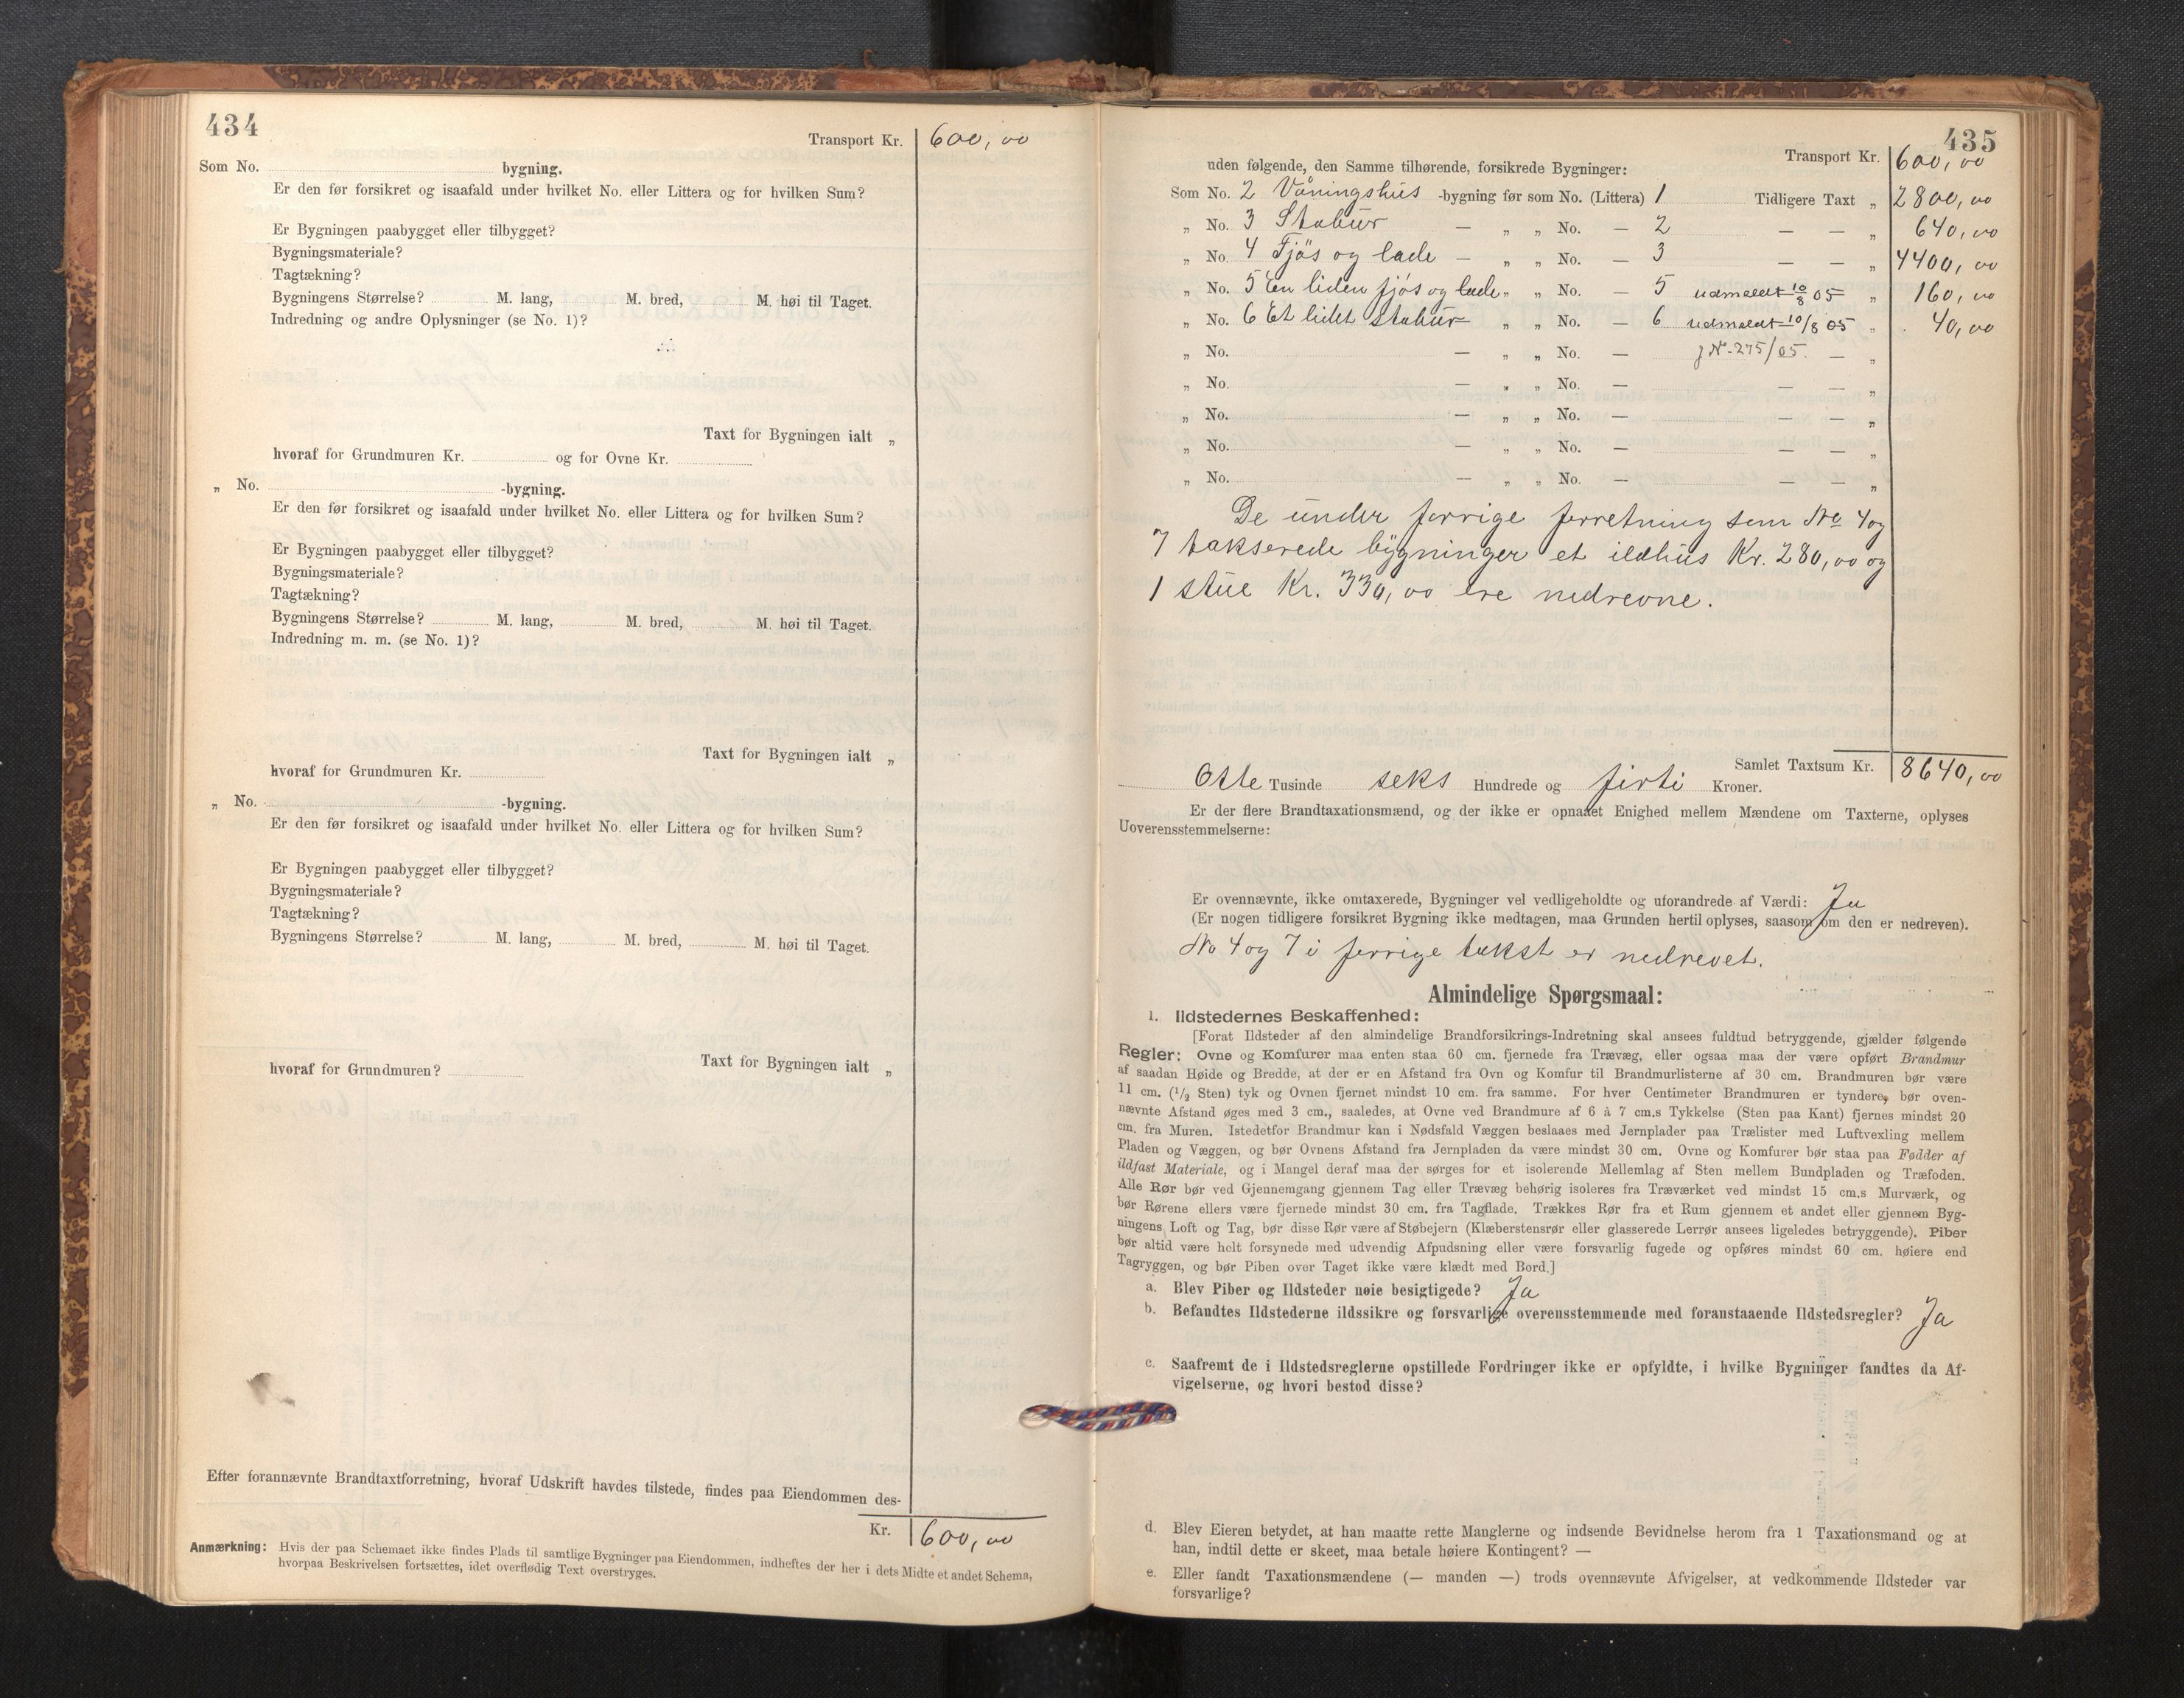 434
Transport Kr. 600,00
Som No. bygning.
Er den før forsikret og isaafald under hvilket No. eller Littera og for hvilken Sum?
Er Bygningen paabygget eller tilbygget?
Bygningsmateriale?
Tagtækning?
Bygningens Størrelse? M. lang, M. bred, M. høi til Taget.
Indredning og andre Oplysninger (se No. 1)?
Taxt for Bygningen ialt „
hvoraf for Grundmuren Kr. og for Ovne Kr.
„ No. -bygning.
Er den før forsikret og isaafald under hvilket No. eller Littera og for hvilken Sum?
Er Bygningen paabygget eller tilbygget?
Bygningsmateriale?
Tagtækning?
Bygningens Størrelse? M. lang, M. bred, M. høi til Taget.
Indredning m. m. (se No. 1)?
Taxt for Bygningen ialt „
hvoraf for Grundmuren Kr.
„ No. -bygning.
Er den før forsikret og isaafald under hvilket No. eller Littera og for hvilken Sum?
Er Bygningen paabygget eller tilbygget?
Bygningsmateriale?
Tagtækning?
Bygningens Størrelse? M. lang, M. bred, M. høi til Taget.
Taxt for Bygningen ialt „
hvoraf for Grundmuren?
Efter forannævnte Brandtaxtforretning, hvoraf Udskrift havdes tilstede, findes paa Eiendommen des-
Kr. 600,00
Anmærkning: Hvis der paa Schemaet ikke findes Plads til samtlige Bygninger paa Eiendommen, indheftes der her i dets Midte et andet Schema,
hvorpaa Beskrivelsen fortsættes, idet overflødig Text overstryges.
435
Transport Kr. 600,00
uden følgende, den Samme tilhørende, forsikrede Bygninger:
Som No. 2 Våningshus -bygning før som No. (Littera) 1 Tidligere Taxt „ 2800,00
„ No. 3 Stabur — „ „ No. — 2 — — „ 640,00
„ No. 4 Fjös og lade — „ „ No. — 3 — — „ 4400,00
„ No. 5 En liden fjös og lade „ „ No. — 5 udmeldt 10/8 05 „ 160,00
„ No. 6 Et lidet stabur „ „ No. — 6 udmeldt 10/8 05 „ 40,00
„ No. — „ „ No. — j N. 275/05. — „
„ No. — „ „ No. — — — „
„ No. — „ „ No. — — — „
„ No. — „ „ No. — — — „
„ No. — „ „ No. — — — „
De under forrige forretning som No 4 og
7 takserede bygninger et ildhus Kr. 280,00 og
1 stue Kr. 330,00 ere nedrevne.
Samlet Taxtsum Kr. 8640,00
Otte Tusinde seks Hundrede og firti Kroner.
Er der flere Brandtaxationsmænd, og der ikke er opnaaet Enighed mellem Mændene om Taxterne, oplyses
Uoverensstemmelserne:
Er ovennævnte, ikke omtaxerede, Bygninger vel vedligeholdte og uforandrede af Værdi: Ja
(Er nogen tidligere forsikret Bygning ikke medtagen, maa Grunden hertil oplyses, saasom om den er nedreven).
No 4 og 7 i forrige takst er nedrevet.
Almindelige Spørgsmaal:
1. Ildstedernes Beskaffenhed:
[Forat Ildsteder af den almindelige Brandforsikrings-Indretning skal ansees fuldtud betryggende, gjælder følgende
Regler: Ovne og Komfurer maa enten staa 60 cm. fjernede fra Trævæg, eller ogsaa maa der være opført Brandmur
af saadan Høide og Bredde, at der er en Afstand fra Ovn og Komfur til Brandmurlisterne af 30 cm. Brandmuren bør være
11 cm. (1/2 Sten) tyk og Ovnen fjernet mindst 10 cm. fra samme. For hver Centimeter Brandmuren er tyndere, bør oven-
nævnte Afstand øges med 3 cm., saaledes, at Ovne ved Brandmure af 6 à 7 cm.s Tykkelse (Sten paa Kant) fjernes mindst 20
cm. fra Muren. Istedetfor Brandmur kan i Nødsfald Væggen beslaaes med Jernplader paa Trælister med Luftvexling mellem
Pladen og Væggen, og bør Ovnens Afstand fra Jernpladen da være mindst 30 cm. Ovne og Komfurer bør staa paa Fødder af
ildfast Materiale, og i Mangel deraf maa der sørges for et isolerende Mellemlag af Sten mellem Bundpladen og Træfoden.
Alle Rør bør ved Gjennemgang gjennem Tag eller Trævæg behørig isoleres fra Træværket ved mindst 15 cm.s Murværk, og
bør Rørene ellers være fjernede mindst 30 cm. fra Tagflade. Trækkes Rør fra et Rum gjennem et andet eller gjennem Byg-
ningens Loft og Tag, bør disse Rør være af Støbejern (Klæberstensrør eller glasserede Lerrør ansees ligeledes betryggende). Piber
bør altid være helt forsynede med udvendig Afpudsning eller være forsvarlig fugede og opføres mindst 60 cm. høiere end
Tagryggen, og bør Piben over Taget ikke være klædt med Bord.]
a. Blev Piber og Ildsteder nøie besigtigede? Ja
b. Befandtes Ildstederne ildssikre og forsvarlige overensstemmende med foranstaaende Ildstedsregler? Ja
c. Saafremt de i Ildstedsreglerne opstillede Fordringer ikke er opfyldte, i hvilke Bygninger fandtes da Af-
vigelserne, og hvori bestod disse?
d. Blev Eieren betydet, at han maatte rette Manglerne og indsende Bevidnelse herom fra 1 Taxationsmand og at
han, indtil dette er skeet, maa betale høiere Kontingent? —
e. Eller fandt Taxationsmændene (— manden —) trods ovennævnte Afvigelser, at vedkommende Ildsteder var
forsvarlige?